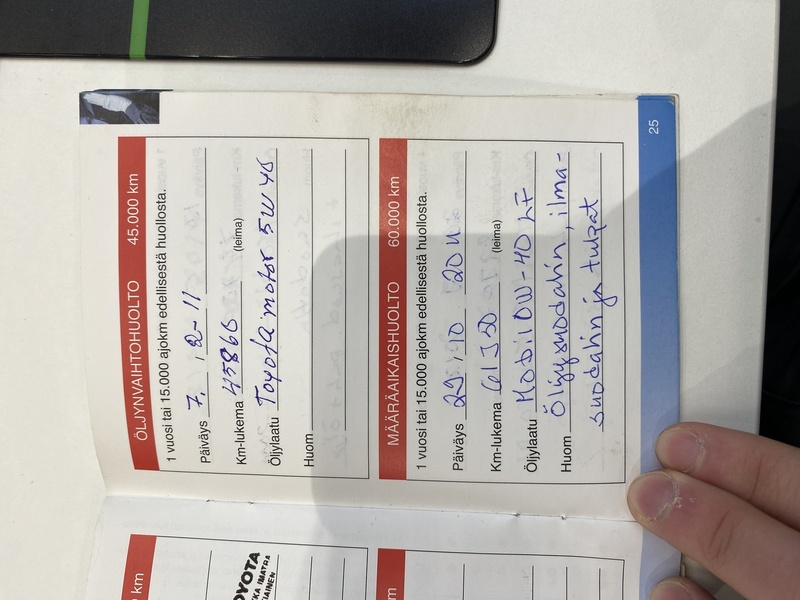 ÖLJYNVAIHTOHUOLTO 45.000 km
1 vuosi tai 15.000 ajokm edellisestä huollosta.
Päiväys 7. , 2-11
Km-lukema 45866 (leima)
Öljylaatu Toyota motor 5W40
Huom
MÄÄRÄAIKAISHUOLTO 60.000 km
1 vuosi tai 15.000 ajokm edellisestä huollosta.
Päiväys , 10 20
Km-lukema (leima)
Öljylaatu Mobil 0W-40 LF
Huom Öljynsuodatin, ilma-
suodatin ja tulpat
25
km
OYOTA
KKA IMATRA
IAINEN
m